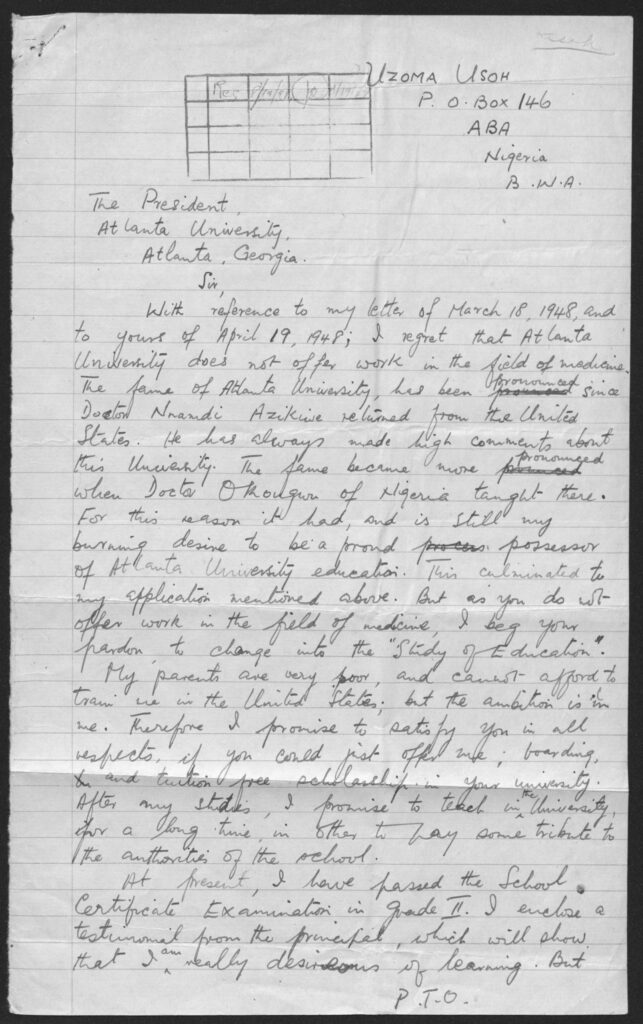 Rec
UZOMA USOH
P. O. BOX 146
ABA
Nigeria
B.W.A.
The President,
Atlanta University,
Atlanta, Georgia.
Sir,
With reference to my letter of March 18, 1948, and
to yours of April 19, 1948; I regret that Atlanta
University does not offer work in the field of medicine.
The fame of Atlanta University, has been pronounced since
Doctor Nnamdi Azikiwe returned from the United
States. He has always made high comments about
this University. The fame became more pronounced
when Doctor Okongwu of Nigeria taught there.
For this reason it had, and is still my
burning desire to be a proud possessor
of Atlanta University education. This culminated to
my application mentioned above. But as you do not
offer work in the field of medicine, I beg your
pardon, to change into the "Study of Education".
My parents are very poor, and cannot afford to
train me in the United States; but the ambition is in
me. Therefore I promise to satisfy you in all
respects, if you could just offer me; boarding,
and tuition free scholarship in your university.
After my studies, I promise to teach in the University,
for a long time, in other to pay some tribute to
the authorities of the school.
At present, I have passed the School
Certificate Examination in grade II. I enclose a
testimonial from the principal, which will show
that I am really desirous of learning. But
P.T.O.